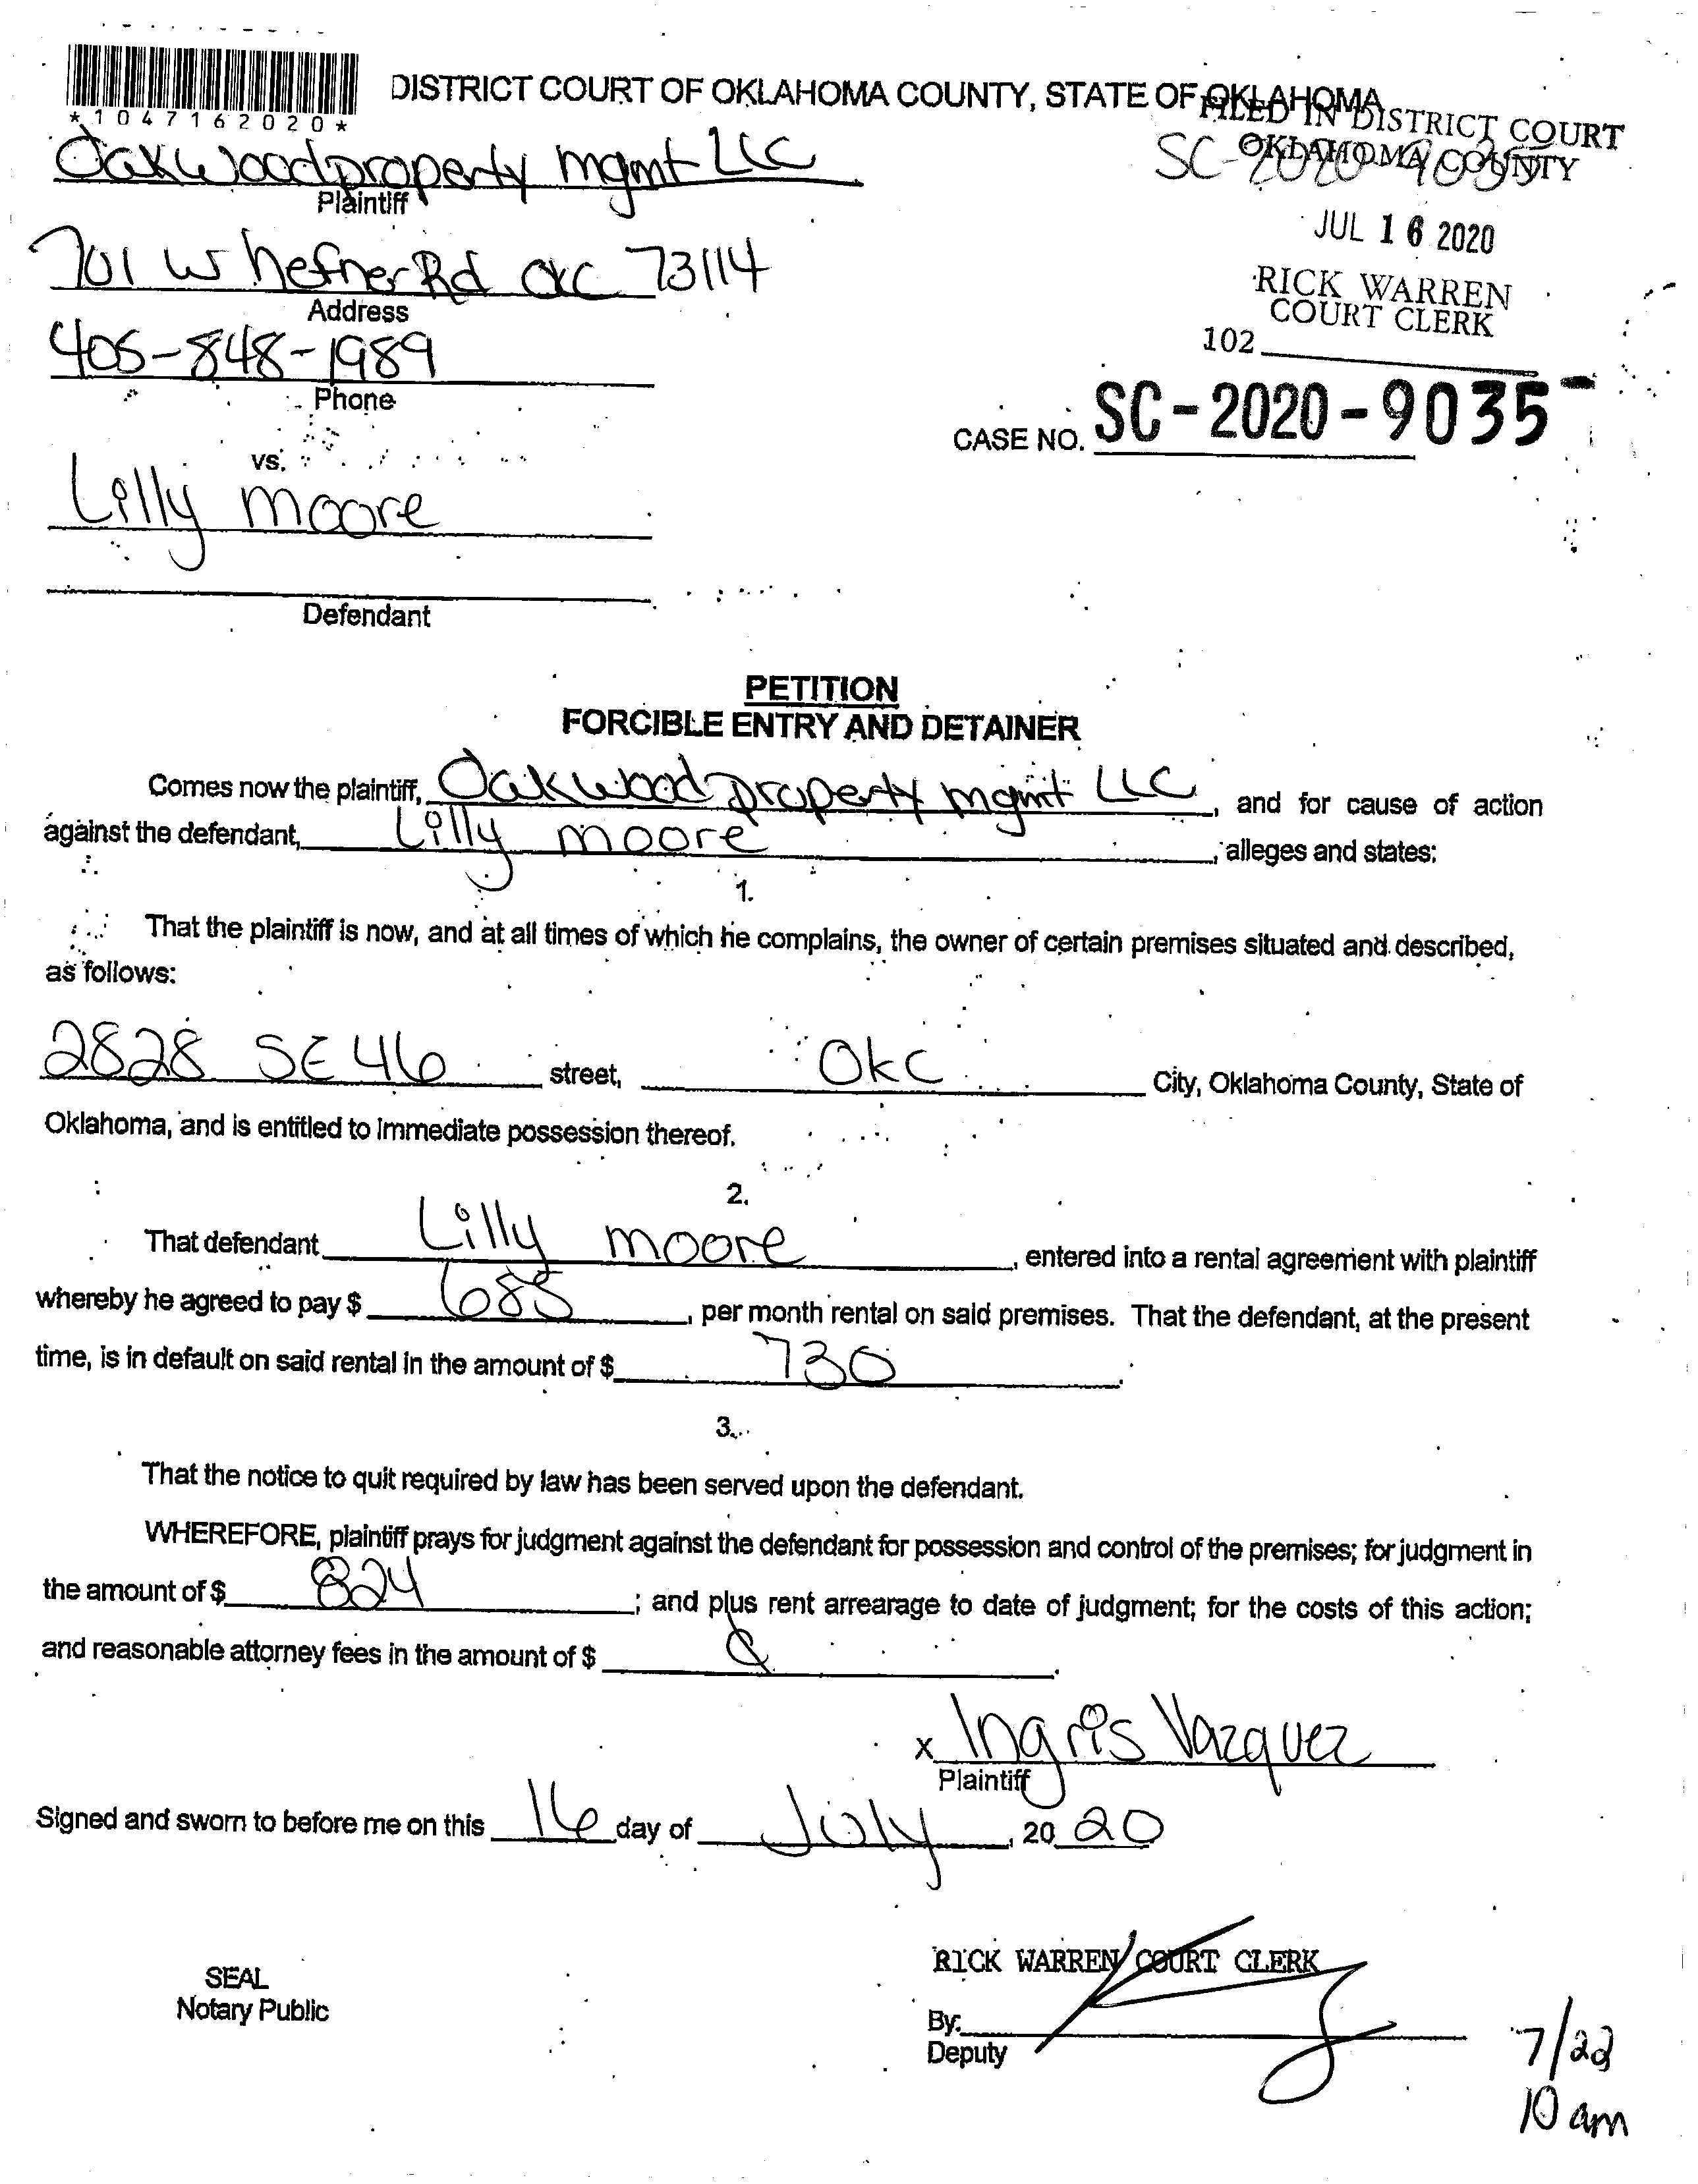 DISTRICT COURT OF OKLAHOMA COUNTY, STATE OF OKLAHOMA
*1047162020*
FILED IN DISTRICT COURT
OKLAHOMA COUNTY
SC-2020-9035
Oakwood property mgmt LLC
Plaintiff
JUL 16 2020
701 W hefner Rd OKC 73114
Address
RICK WARREN
COURT CLERK
102
405-848-1989
Phone
CASE NO. SC-2020-9035
vs.
Lilly moore
Defendant
PETITION
FORCIBLE ENTRY AND DETAINER
Comes now the plaintiff, Oakwood property mgmt LLC, and for cause of action
against the defendant, Lilly moore, alleges and states:
1.
That the plaintiff is now, and at all times of which he complains, the owner of certain premises situated and described,
as follows:
2828 SE 46 street, OKC City, Oklahoma County, State of
Oklahoma, and is entitled to immediate possession thereof.
2.
That defendant Lilly moore, entered into a rental agreement with plaintiff
whereby he agreed to pay $ 685, per month rental on said premises. That the defendant, at the present
time, is in default on said rental in the amount of $ 730.
3.
That the notice to quit required by law has been served upon the defendant.
WHEREFORE, plaintiff prays for judgment against the defendant for possession and control of the premises; for judgment in
the amount of $ 824; and plus rent arrearage to date of judgment; for the costs of this action;
and reasonable attorney fees in the amount of $
x Ingris Vazquez
Plaintiff
Signed and sworn to before me on this 16 day of July, 20 20
RICK WARREN COURT CLERK
SEAL
Notary Public
By:
Deputy
7/22
10 am